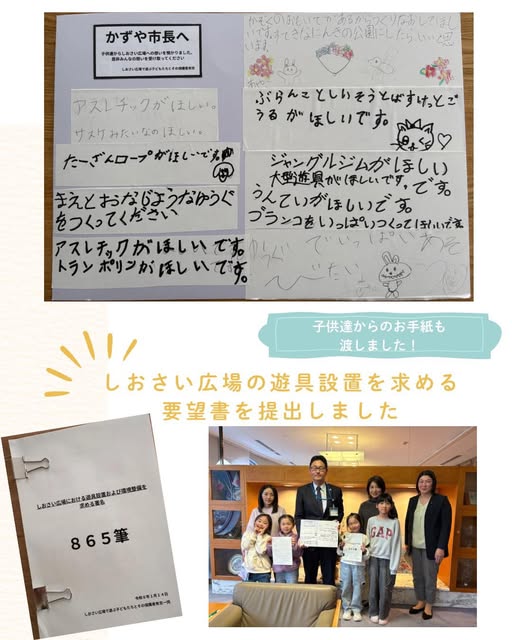 かずや市長へ
子供達からしおさい広場への想いを預かりました。
是非みんなの想いを受け取ってください
しおさい広場で遊ぶ子どもたちとその保護者有志一同
アスレチックがほしい。
サスケみたいなのほしい。
たーざんロープがほしいです
まえとおなじようなゆうぐ
をつくってください
アスレチックがほしいです。
トランポリンがほしいです。
かぞくのおもいでがあるからつくりなおしてほし
いです。
ぶらんことしいそうとばすけっとご
うるがほしいです。
ジャングルジムがほしい
です。
大型遊具がほしいです。
うんていがほしいです。
ブランコをいっぱいつくってほしいです
子供達からのお手紙も
渡しました！
しおさい広場の遊具設置を求める
要望書を提出しました
しおさい広場における遊具設置および環境整備を
求める署名
８６５筆
しおさい広場で遊ぶ子どもたちとその保護者有志一同
GAP